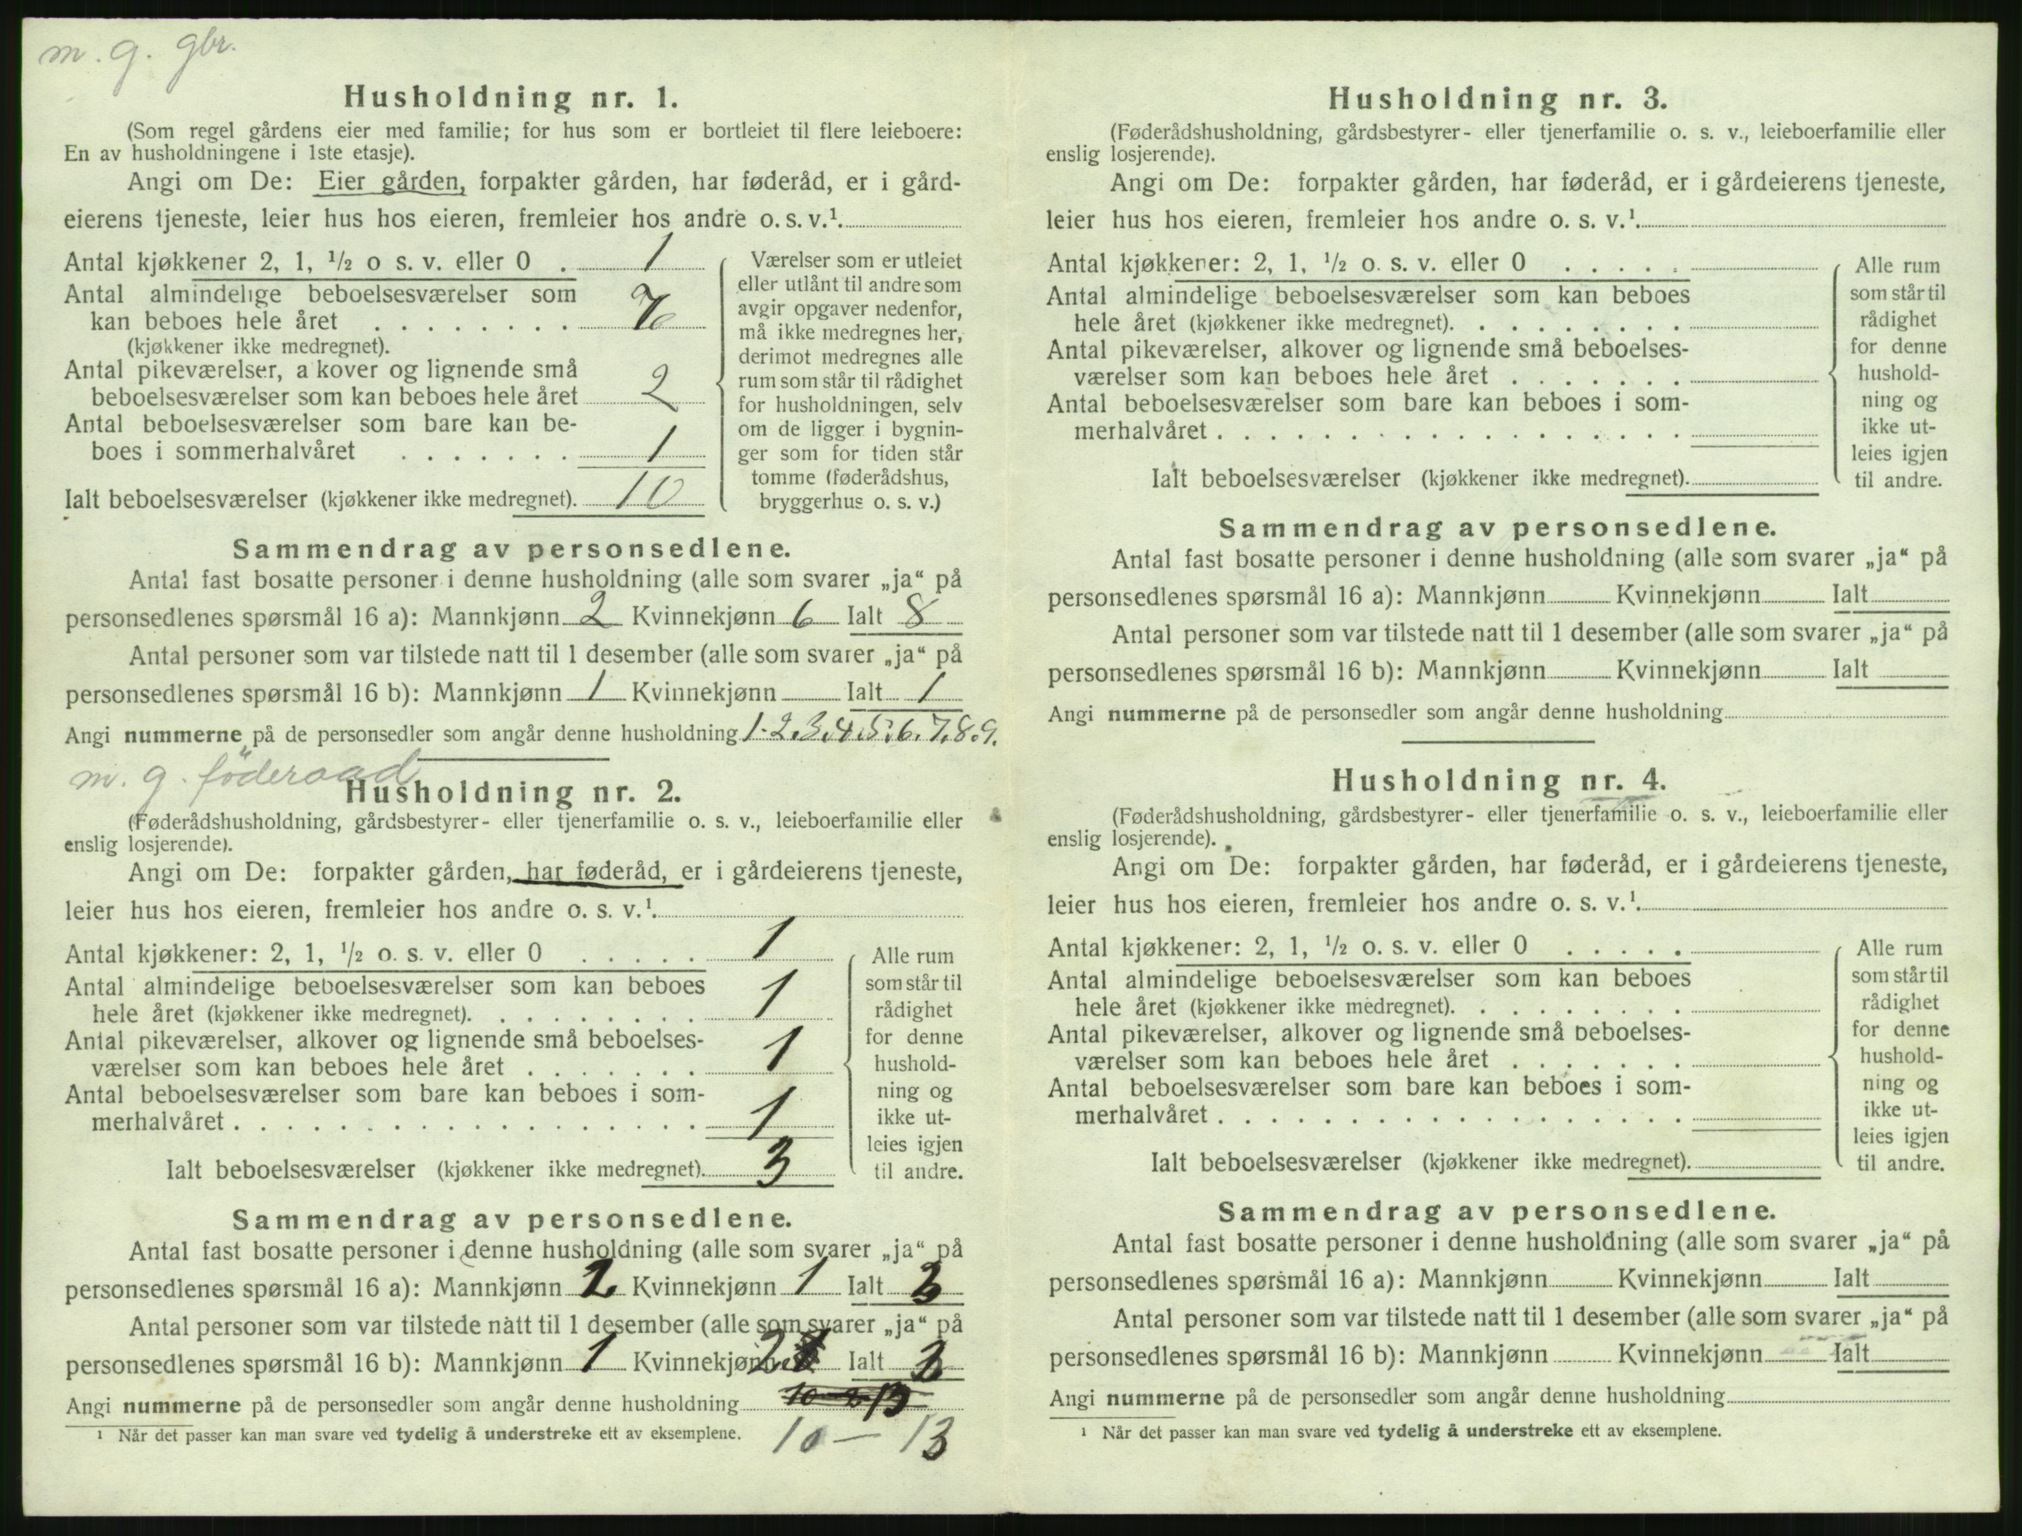 m. g. gbr.
Husholdning nr. 1.
(Som regel gårdens eier med familie; for hus som er bortleiet til flere leieboere:
En av husholdningene i 1ste etasje).
Angi om De: Eier gården, forpakter gården, har føderåd, er i gård-
eierens tjeneste, leier hus hos eieren, fremleier hos andre o. s. v.¹
Antal kjøkkener 2, 1, ½ o s. v. eller 0 . 1
Antal almindelige beboelsesværelser som
kan beboes hele året . . . . . . . . 7
(kjøkkener ikke medregnet).
Antal pikeværelser, a kover og lignende små
beboelsesværelser som kan beboes hele året 2
Antal beboelsesværelser som bare kan be-
boes i sommerhalvåret . . . . . . . 1
Ialt beboelsesværelser (kjøkkener ikke medregnet). 10
Værelser som er utleiet
eller utlånt til andre som
avgir opgaver nedenfor,
må ikke medregnes her,
derimot medregnes alle
rum som står til rådighet
for husholdningen, selv
om de ligger i bygnin-
ger som for tiden står
tomme (føderådshus,
bryggerhus o. s. v.)
Sammendrag av personsedlene.
Antal fast bosatte personer i denne husholdning (alle som svarer „ja“ på
personsedlenes spørsmål 16 a): Mannkjønn 2 Kvinnekjønn 6 Ialt 8
Antal personer som var tilstede natt til 1 desember (alle som svarer „ja“ på
personsedlenes spørsmål 16 b): Mannkjønn 1 Kvinnekjønn Ialt 1
Angi nummerne på de personsedler som angår denne husholdning 1.2.3.4.5.6.7.8.9.
m. g. föderaad
Husholdning nr. 2.
(Føderådshusholdning, gårdsbestyrer- eller tjenerfamilie o. s. v., leieboerfamilie eller
enslig losjerende).
Angi om De: forpakter gården, har føderåd, er i gårdeierens tjeneste,
leier hus hos eieren, fremleier hos andre o. s. v.¹
Antal kjøkkener: 2, 1, ½ o. s. v. eller 0 . . . . . 1
Antal almindelige beboelsesværelser som kan beboes
hele året (kjøkkener ikke medregnet). . . . . . . . . 1
Antal pikeværelser, alkover og lignende små beboelses-
værelser som kan beboes hele året . . . . . . . 1
Antal beboelsesværelser som bare kan beboes i som-
merhalvåret . . . . . . . . . . . . . . . . . . 1
Ialt beboelsesværelser (kjøkkener ikke medregnet). 3
Alle rum
som står til
rådighet
for denne
hushold-
ning og
ikke ut-
leies igjen
til andre.
Sammendrag av personsedlene.
Antal fast bosatte personer i denne husholdning (alle som svarer „ja“ på
personsedlenes spørsmål 16 a): Mannkjønn 2 Kvinnekjønn 1 Ialt 3
Antal personer som var tilstede natt til 1 desember (alle som svarer „ja“ på
personsedlenes spørsmål 16 b): Mannkjønn 1 Kvinnekjønn 2 Ialt 3
Angi nummerne på de personsedler som angår denne husholdning
¹ Når det passer kan man svare ved tydelig å understreke ett av eksemplene. 10 — 13
Husholdning nr. 3.
(Føderådshusholdning, gårdsbestyrer- eller tjenerfamilie o. s. v., leieboerfamilie eller
enslig losjerende).
Angi om De: forpakter gården, har føderåd, er i gårdeierens tjeneste,
leier hus hos eieren, fremleier hos andre o. s. v.¹
Antal kjøkkener: 2, 1, ½ o. s. v. eller 0 . . . . .
Antal almindelige beboelsesværelser som kan beboes
hele året (kjøkkener ikke medregnet). . . . . . . . .
Antal pikeværelser, alkover og lignende små beboelses-
værelser som kan beboes hele året . . . . . . .
Antal beboelsesværelser som bare kan beboes i som-
merhalvåret . . . . . . . . . . . . . . . . . .
Ialt beboelsesværelser (kjøkkener ikke medregnet).
Alle rum
som står til
rådighet
for denne
hushold-
ning og
ikke ut-
leies igjen
til andre.
Sammendrag av personsedlene.
Antal fast bosatte personer i denne husholdning (alle som svarer „ja“ på
personsedlenes spørsmål 16 a): Mannkjønn Kvinnekjønn Ialt
Antal personer som var tilstede natt til 1 desember (alle som svarer „ja“ på
personsedlenes spørsmål 16 b): Mannkjønn Kvinnekjønn Ialt
Angi nummerne på de personsedler som angår denne husholdning
Husholdning nr. 4.
(Føderådshusholdning, gårdsbestyrer- eller tjenerfamilie o. s. v., leieboerfamilie eller
enslig losjerende).
Angi om De: forpakter gården, har føderåd, er i gårdeierens tjeneste,
leier hus hos eieren, fremleier hos andre o. s. v.¹
Antal kjøkkener: 2, 1, ½ o. s. v. eller 0 . . . . .
Antal almindelige beboelsesværelser som kan beboes
hele året (kjøkkener ikke medregnet). . . . . . . . .
Antal pikeværelser, alkover og lignende små beboelses-
værelser som kan beboes hele året . . . . . . .
Antal beboelsesværelser som bare kan beboes i som-
merhalvåret . . . . . . . . . . . . . . . . . .
Ialt beboelsesværelser (kjøkkener ikke medregnet).
Alle rum
som står til
rådighet
for denne
hushold-
ning og
ikke ut-
leies igjen
til andre.
Sammendrag av personsedlene.
Antal fast bosatte personer i denne husholdning (alle som svarer „ja“ på
personsedlenes spørsmål 16 a): Mannkjønn Kvinnekjønn Ialt
Antal personer som var tilstede natt til 1 desember (alle som svarer „ja“ på
personsedlenes spørsmål 16 b): Mannkjønn Kvinnekjønn Ialt
Angi nummerne på de personsedler som angår denne husholdning
¹ Når det passer kan man svare ved tydelig å understreke ett av eksemplene.